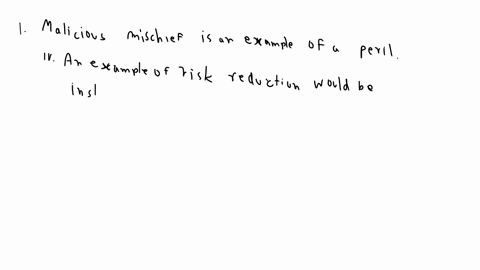 1. Malicious mischief is an example of a peril.
iv. An example of risk reduction would be
insl